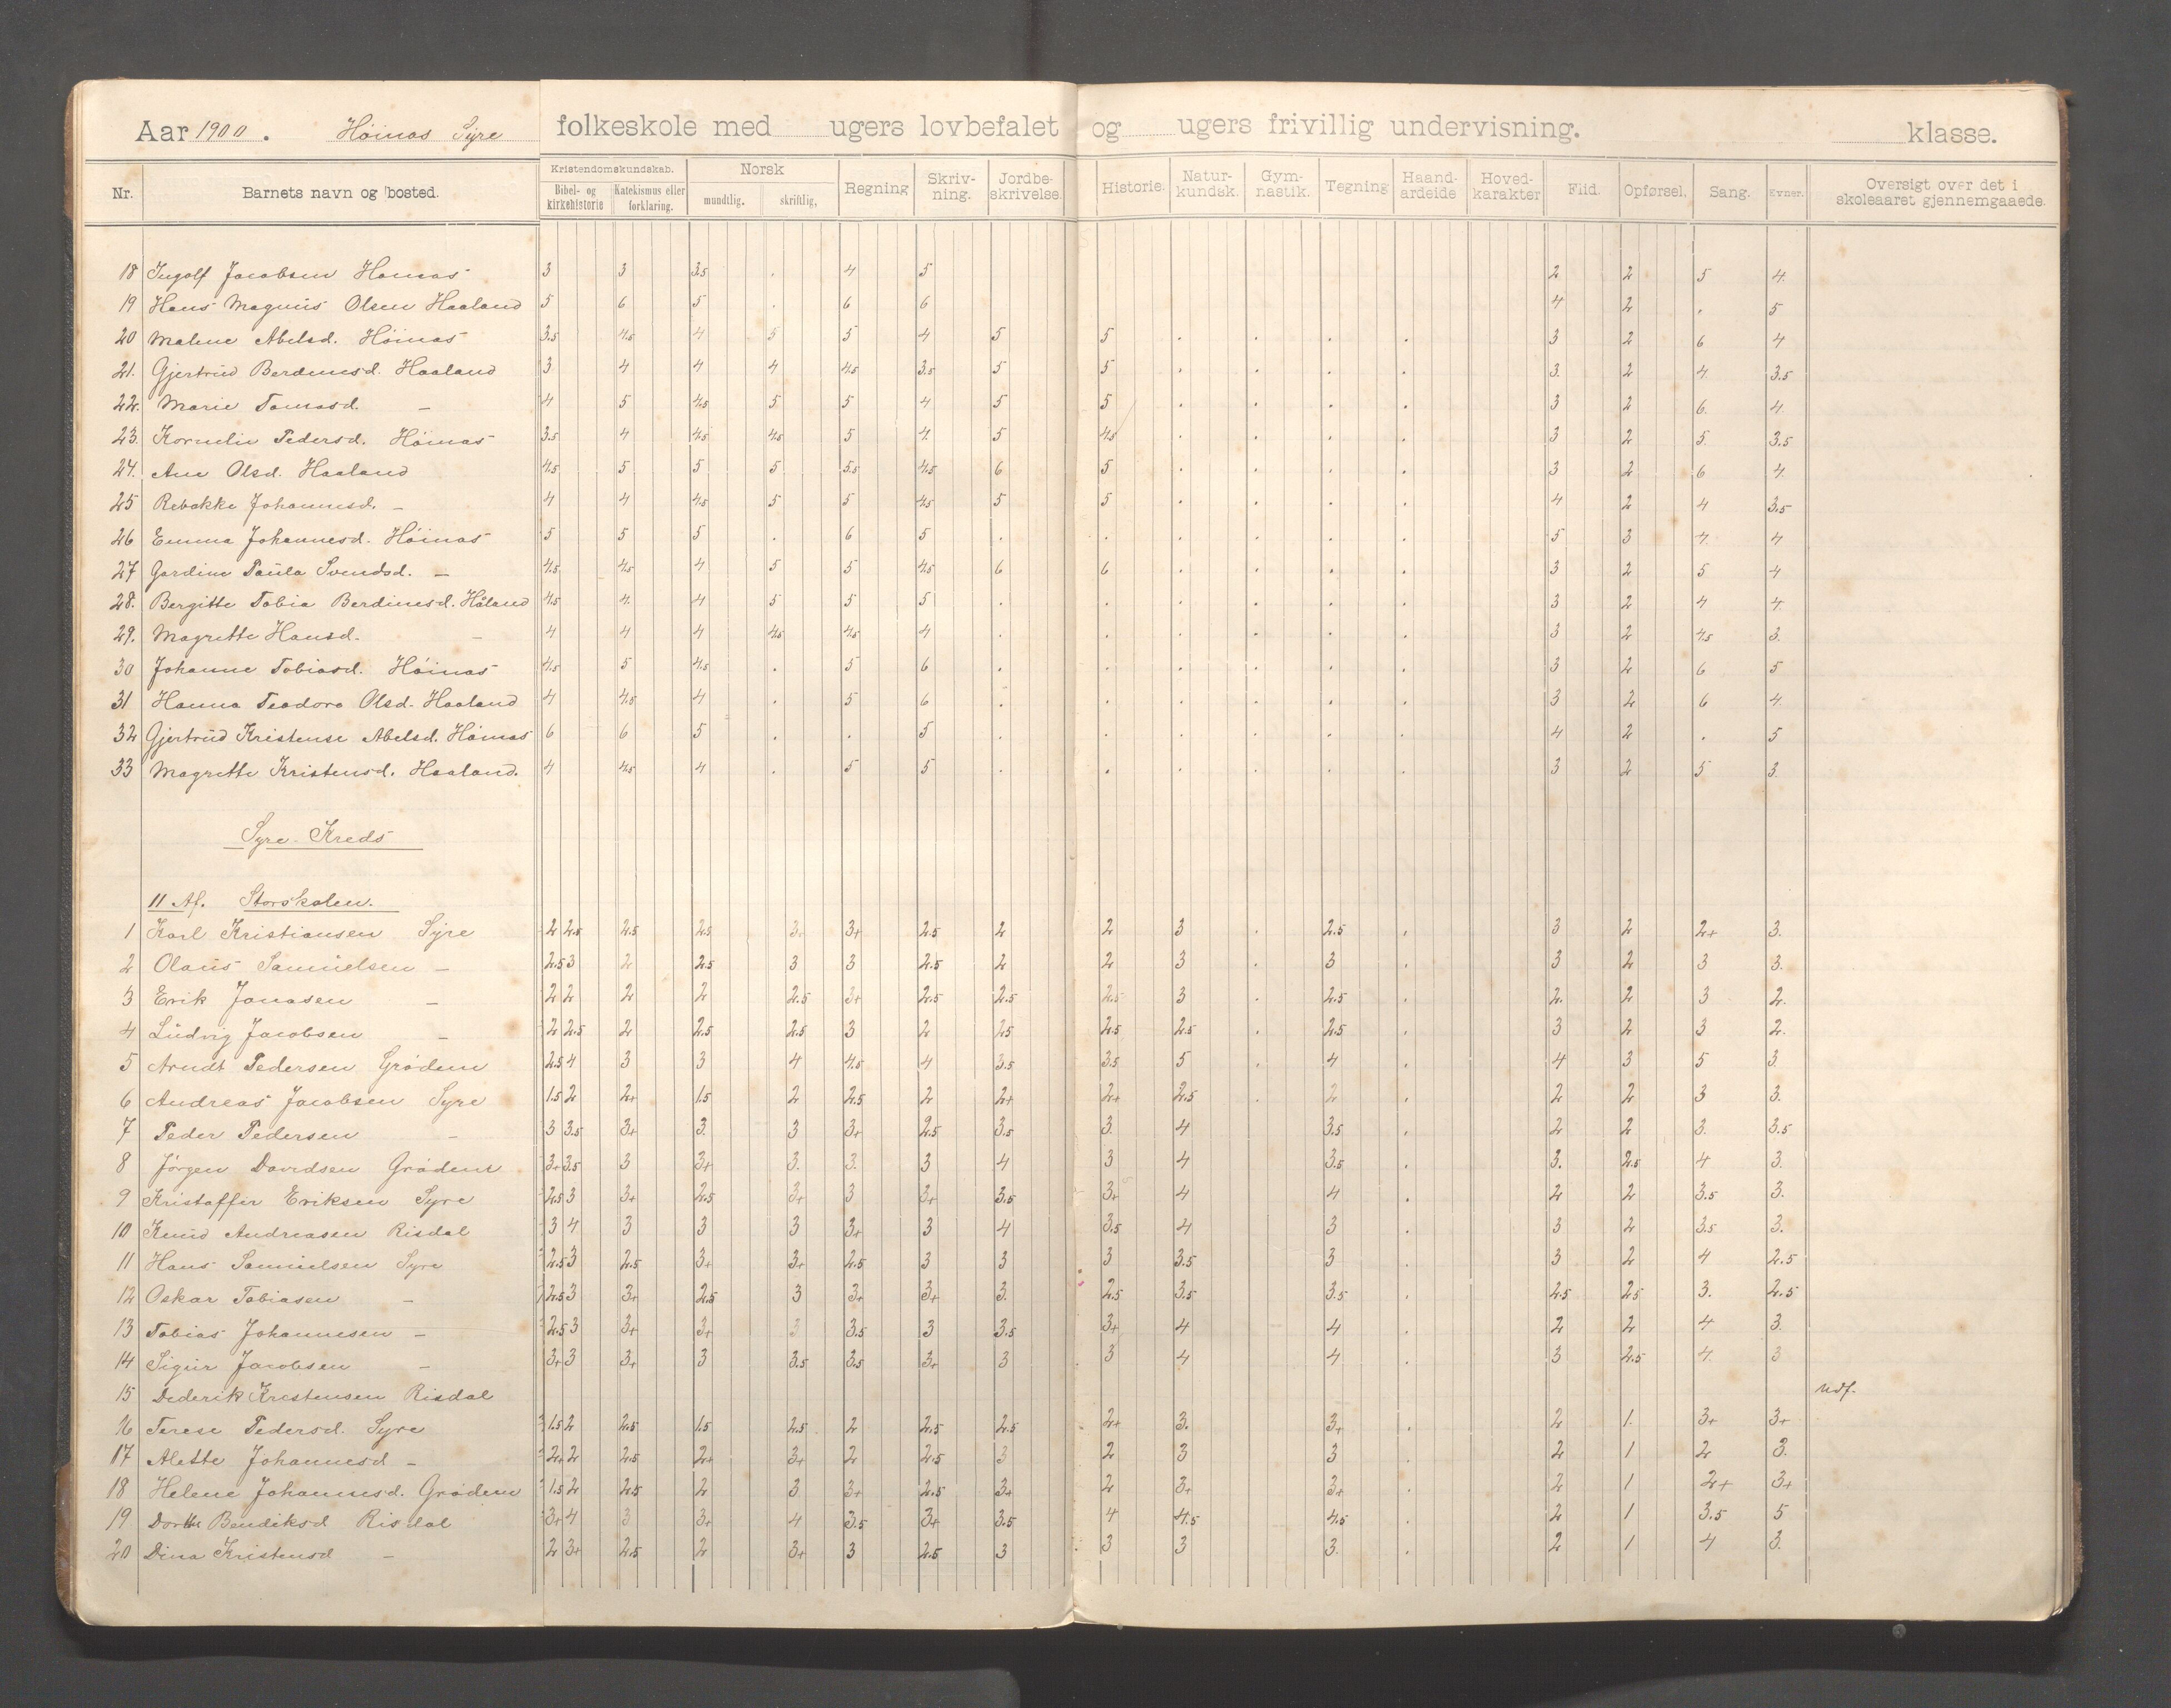 Aar 1900. Höinas Syre folkeskole med ugers lovbefalet og ugers frivillig undervisning. klasse.
Nr. Barnets navn og bosted. Kristendomskundskab. Bibel- og kirkehistorie Katekismus eller forklaring. Norsk mundtlig. skriftlig, Regning Skriv-ning. Jordbe-skrivelse. Historie. Natur-kundsk. Gym-nastik. Tegning Haand-arbeide Hoved-karakter Flid. Opførsel. Sang. Evner. Oversigt over det i skoleaaret gjennemgaaede.
18 Ingolf Jacobsen Höinas 3 3 3.5 . 4 5 2 2 5 4.
19 Hans Magnus Olsen Haaland 5 6 5 . 6 6 4 2 . 5
20 Malene Abelsd. Höinas 3.5 4.5 4 5 5 4 5 5 . . . . 3 2 6 4
21. Gjertrud Berdinesd. Haaland 3 4 4 4 4.5 3.5 5 5 . . . . 3. 2 4 3.5
22. Marie Tomasd. – 4 5 4.5 5 5 4 5 5 . . . . 3 2 6. 4.
23. Kornelie Pedersd. Höinas 3.5 4 4.5 4.5 5 4. 5 4.5 . . . . 3 2 5. 3.5
24. Ane Olsd. Haaland 4.5 5 5 5 5.5 4.5 6 5 . . . . 3 2 6 4.
25 Rebakke Johannesd. – 4 4 4.5 5 5 4.5 5 5 . . . . 4 2 4 3.5
26 Emma Johannesd. Höinas 5 5 5 . 6 5 . . . . . . 5 3 4. 4
27 Gardine Paula Svendsd. – 4.5 4.5 4 5 5 4.5 6 6 . . . . 3 2 5 4
28. Bergitte Tobia Berdinesd. Håland 4.5 4. 4 5 5 5 . . . . . . 3 2 4 4.
29. Magrethe Hansd. – 4 4 4 4.5 4.5 4 . . . . . . 3 2 4.5 3.
30 Johanne Tobiasd. Höinas 4.5 5 4.5 . 5 6 . . . . . . 3 2 6 5
31 Hanna Teodora Olsd. Haaland 4 4.5 4 . 5 6 . . . . . . 3 2 6 4.
32 Gjertrud Kristense Abelsd. Höinas 6 6 5 . . 5 . . . . . . 4 2 . 5
33 Magrethe Kristensd. Haaland. 4 4.5 4 . 5 5 . . . . . . 3 2 5 3.
Syre Kreds
11 Af. Storskolen.
1 Karl Kristiansen Syre 2 2.5 2.5 2.5 3. 3+ 2.5 2 2 3 . 2.5 . 3 2 2+ 3.
2 Olaus Samuelsen – 2.5 3 2 2.5 3 3 2.5 2 2 3 . 3 . 3 2 3 3.
3 Erik Jonasen – 2 2 2 2 2.5 3+ 2.5 2.5 2.5 3 . 2.5 . 2. 2 3 2.
4 Ludvig Jacobsen – 2 2.5 2 2.5 2.5 3 2 2.5 2.5 2.5 . 2.5 . 3 2 3 2.
5 Arndt Pedersen Grödem 2.5 4 3 3 4 4.5 4 3.5 3.5 5 . 4 . 4 3 5 3.
6 Andreas Jacobsen Syre 1.5 2 2+ 1.5 2 2.5 2 2+ 2+ 2.5 . 2 . 2 2 3 3.
7 Peder Pedersen – 3 3.5 3+ 3. 3 3+ 2.5 3.5 3. 4 3.5 . 2 2 3. 3.5
8 Jörgen Davidsen Grödem 3+ 3.5 3 3+ 3. 3. 3 4 3 4 3.5 . 3. 2.5 4 3.
9 Kristoffer Eriksen Syre 2.5 3 3+ 2.5 3+ 3 3+ 3.5 3+ 4 4 . 2 2 3.5 3.
10 Knud Andreasen Risdal 3 4 3 3 3 3+ 3 4 3.5 4 3 . 3 2 3.5 3.
11 Hans Samuelsen Syre 2.5 3 2.5 3+ 3+ 2.5 3 3 3 3.5 3 . 3 2 4 2.5
12 Oskar Tobiasen – 2.5 3 3+ 2.5 3 3+ 3+ 3. 2.5 3.5 3.5 . 2.5 2.5 3. 2.5
13 Tobias Johannesen – 2.5 3 3+ 3+ 3 3.5 3 3.5 3+ 4 4 . 2 2 4 3.
14 Sigur Jacobsen – 3+ 3 3+ 3 3.5 3.5 3+ 3 3 4 4 . 3 2.5 4. 3
15 Dederik Krestensen Risdal Udf.
16 Terese Pedersd. Syre 1.5 2 2.5 1.5 2.5 2 2.5 2.5 2+ 3. 3+ . 2 1. 3+ 3+
17 Alette Johannesd – 2+ 2 2.5 2+ 3+ 2 2.5 3 2 3 3 . 2 1 2 3.
18 Helene Johannesd. Grödem 1.5 2 2.5 2 3 3+ 2.5 3+ 2 3+ 3+ . 2 1 2+ 3+
19 Dorthe Bendiksd Risdal 3+ 4 3 3+ 4 3.5 3+ 3.5 4 4.5 4.5 . 2 1 3.5 5
20 Dina Kristensd – 2 3+ 2.5 2 3+ 3 2.5 3 3 3 3. . 2 1 4 3.